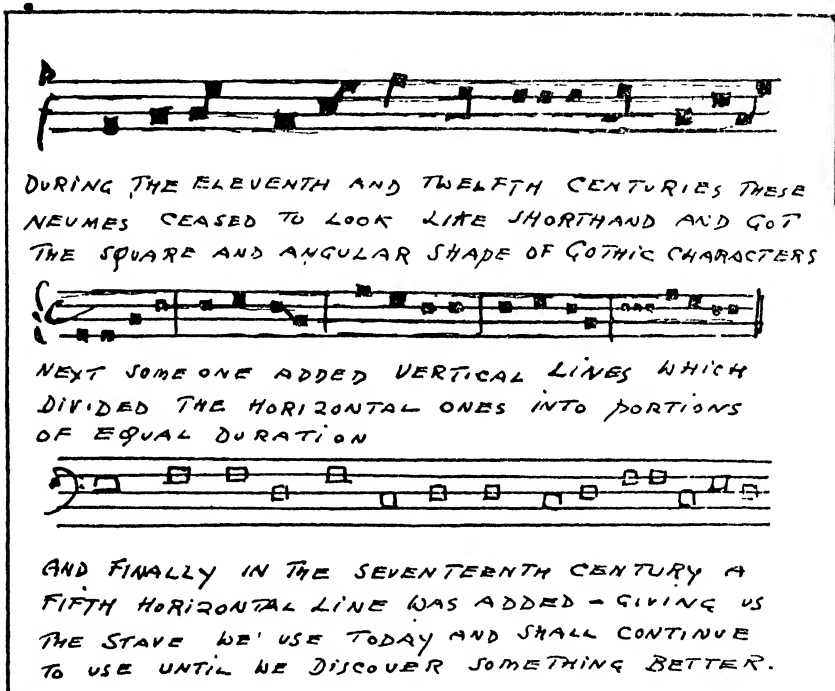 DURING THE ELEVENTH AND TWELFTH CENTURIES THESE
NEUMES CEASED TO LOOK LIKE SHORTHAND AND GOT
THE SQUARE AND ANGULAR SHAPE OF GOTHIC CHARACTERS
NEXT SOME ONE ADDED VERTICAL LINES WHICH
DIVIDED THE HORIZONTAL ONES INTO PORTIONS
OF EQUAL DURATION
AND FINALLY IN THE SEVENTEENTH CENTURY A
FIFTH HORIZONTAL LINE WAS ADDED - GIVING US
THE STAVE WE' USE TODAY AND SHALL CONTINUE
TO USE UNTIL WE DISCOVER SOMETHING BETTER.